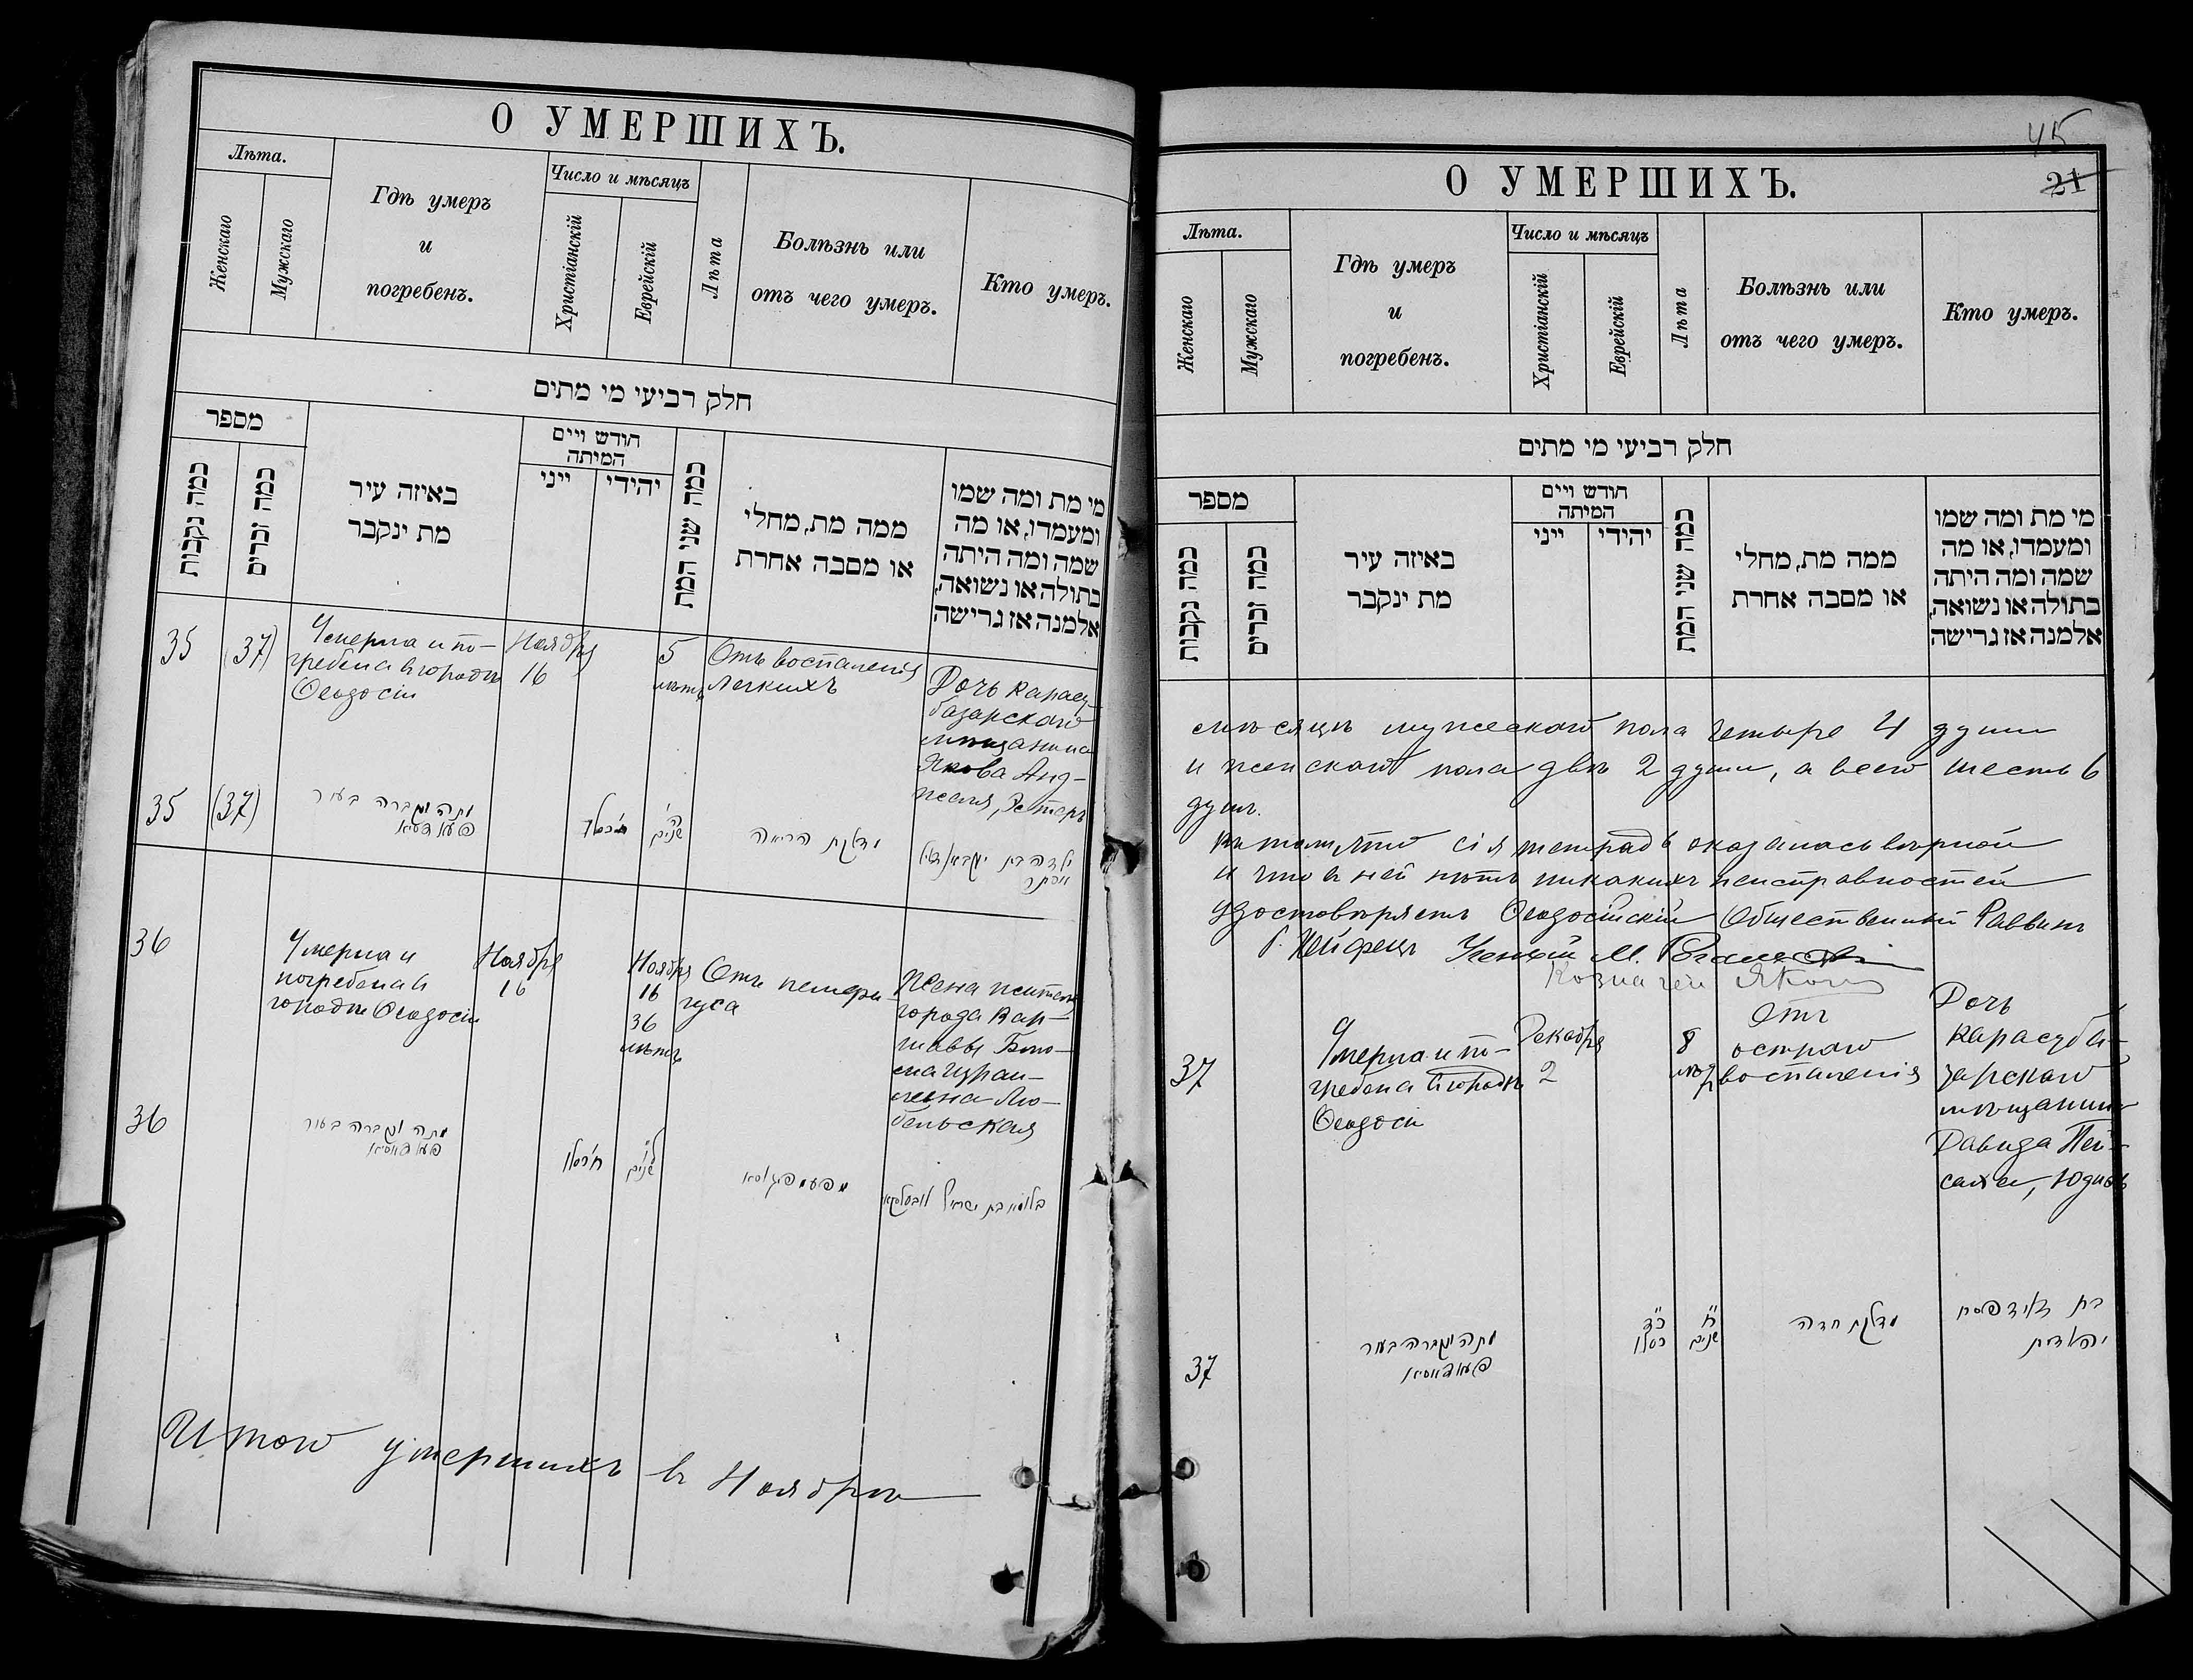 О УМЕРШИХЪ.
Лѣта.
Женскаго
Мужскаго
Гдѣ умеръ
и
погребенъ.
Число и мѣсяцъ
Христіанскій
Еврейскій
Лѣта
Болѣзнь или
отъ чего умеръ.
Кто умеръ.
חלק רביעי מי מתים
מספר
כמה נקבות
כמה זכרים
באיזה עיר
מת ינקבר
חודש ויים
המיתה
ייני
יהידי
כמה שני המת
ממה מת, מחלי
או מסבה אחרת
מי מת ומה שמו
ומעמדו, או מה
שמה ומה היתה
בתולה או נשואה,
אלמנה אז גרישה
35
(37)
Умерла и по-
гребена в городѣ
Ѳеодосіи
Ноября
16
5
лѣтъ
Отъ воспаленія
легкихъ
Дочь карасу-
базарскаго
мѣщанина
Якова Анд-
желя, Эстеръ
35
(37)
מתה ונקברה בעיר
שנים
דלקת הריאה
אסתר
36
Умерла и
погребена в
городѣ Ѳеодосіи
Ноября
16
Ноября
16
36
лѣтъ
Отъ пемфи-
гуса
Жена жителя
города Вар-
шавы Блю-
ма Израи-
левна Лю-
бельская
36
מתה ונקברה בעיר
שנים
בלומא בת ישראל
Итого умершихъ въ Ноябрѣ
45
21
О УМЕРШИХЪ.
Лѣта.
Женскаго
Мужскаго
Гдѣ умеръ
и
погребенъ.
Число и мѣсяцъ
Христіанскій
Еврейскій
Лѣта
Болѣзнь или
отъ чего умеръ.
Кто умеръ.
חלק רביעי מי מתים
מספר
כמה נקבות
כמה זכרים
באיזה עיר
מת ינקבר
חודש ויים
המיתה
ייני
יהידי
כמה שני המת
ממה מת, מחלי
או מסבה אחרת
מי מת ומה שמו
ומעמדו, או מה
שמה ומה היתה
בתולה או נשואה,
אלמנה אז גרישה
мѣсяцѣ мужескаго пола четыре 4 души
и женскаго пола двѣ 2 души, а всего шесть 6
душъ.
въ томъ что сія тетрадь оказалась вѣрной
и что в ней нѣтъ никакихъ неисправностей
удостовѣряетъ Ѳеодосійскій Общественный Раввинъ
Ученый М.
Казначей
37
Умерла и по-
гребена в городѣ
Ѳеодосіи
Декабря
2
8
лѣтъ
Отъ
остраго
воспаленія
Дочь
карасуба-
зарскаго
мѣщанина
Давида Пей-
саха, Юдиѳь
37
מתה ונקברה בעיר
כ״ד
כסלו
ח׳
שנים
דלקת חדה
בת דוד פסח
יהודית